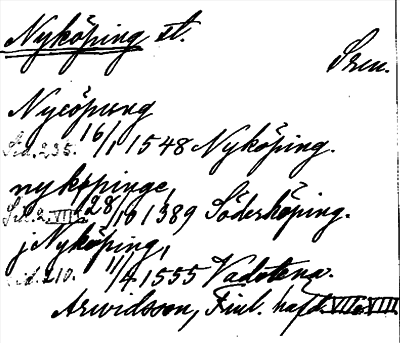 Nyköping st.
Srm.
Nycöpung
Sid. 235. 16/1 1548 Nyköping.
nykøpinge,
28/10 1389 Söderköping.
j Nyköping,
Sid. 210. 11/4 1555 Vadstena.
Arwidsson, Finl. häfd. VII o VIII